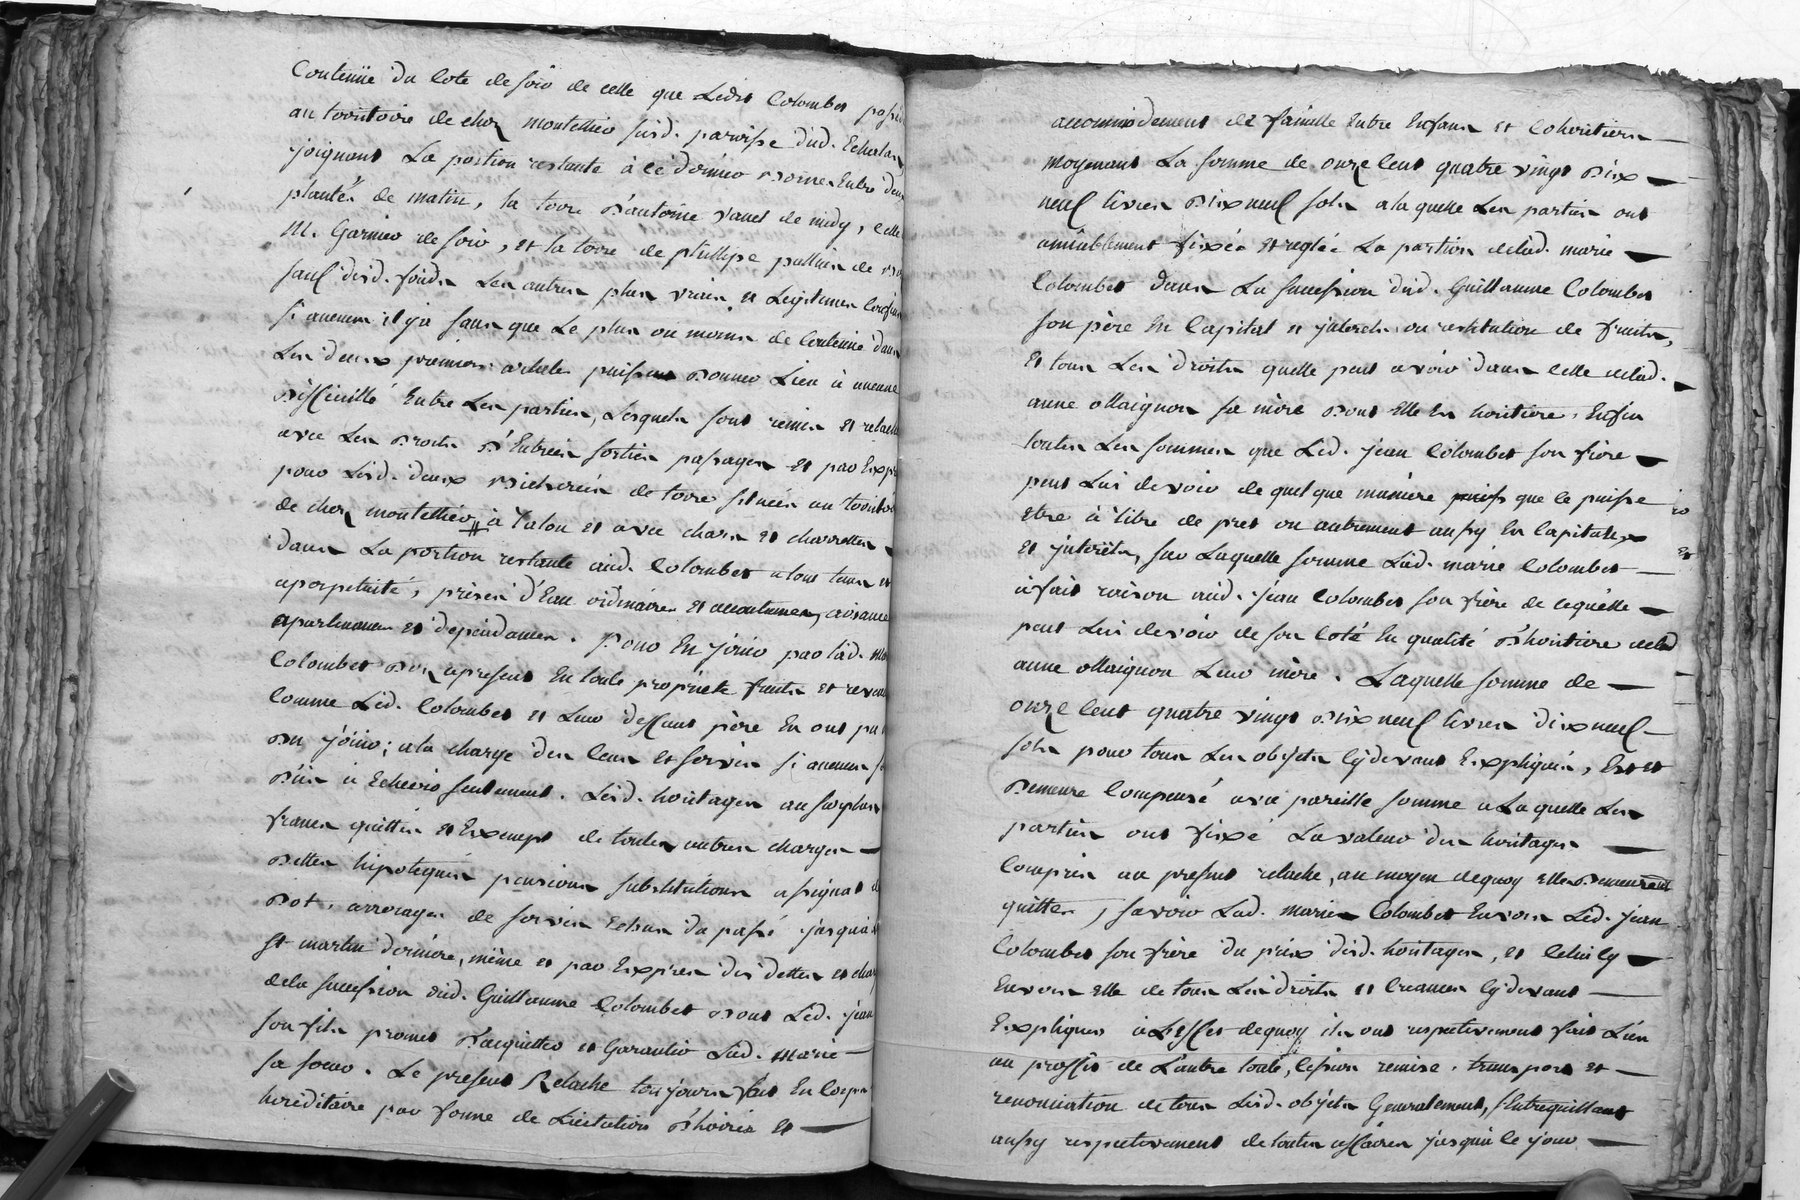 Contenüe du Coté de soir de celle que Ledit Colombet possè
au territoire de chez montellier susd. paroisse dud. Echalas,
joignant La portion restante à ce dernier Borne Entre deux
plantés de matin, la terre d'antoine vanel de midy, celle
M. Garnier de soir, et la terre de phillipe pallun de
sauf desd. fonds Les autres plus vrais et Legitimes Confins
si aucuns il y a sans que Le plus ou moins de Contenüe dans
Les deux premiers articles puisse donner Lieu à aucune
difficulté Entre Les parties, Lesquels sont remis et relach
avec Les droits d'Entrées sorties passages et par Exprès
pour Lesd. deux Bicherées de terre situées au territoire
de chez montellier, à Talon et avec chars et charrettes
dans La portion restante aud. Colombet a tous tems et
aperpetuité, prises d'Eau ordinaires et accoutumées, aisances
apartenances et dependances. Pour En joüir par lad. Ma
Colombet dez apresent En toute proprieté fruits et reven
Comme Led. Colombet et Leur deffunt père En ont pu
Du joüir; a la charge des Cens et servis si aucuns s
Düs à Echeoir seulement. Lesd. heritages au surplus
francs quittes et Exempt de toutes autres charges
Dettes hipoteques pensions substitutions assignat de
Dot, arrerages de servis Echus du passé jusqu'à la
St martin dernière, même et par Exprès des dettes et char
dela succession dud. Guillaume Colombet dont Led. jean
son fils promet d'acquitter et Garantir Lad. Marie
sa soeur. Le present Relache toujours fait En Corps
hereditaire par forme de Licitation d'hoirie et
accommodement de famille Entre Enfans et Coheritiers
moyenant La somme de onze Cent quatre vingt dix
neuf livres dix neuf sols a laquelle Les parties ont
amiablement fixée et reglée La portion delad. marie
Colombet dans La succession dud. Guillaume Colombet
son père En Capital et jnterets ou restitution de fruits,
Et tous Les droits quelle peut avoir dans celle delad.
anne ollaignon sa mère dont Elle Est heritière, Enfin
toutes Les sommes que Led. jean Colombet son frère
peut Lui devoir de quelque manière que ce puisse
Etre à titre de pret ou autrement aussy En Capitale
Et jnterêts, sur Laquelle somme Lad. marie Colombet
à fait raison aud. jean Colombet son frère de cequ'elle
peut Lui devoir de son Coté En qualité d'heritiere delad
anne ollaignon Leur mère. Laquelle somme de
onze Cent quatre vingt dix neuf livres dix neuf
sols pour tous Les objets cydevant Expliqués, Est et
Demeure Compensé avec pareille somme a Laquelle Les
parties ont fixé La valeur des heritages
Compris au present relache, au moyen dequoy elles demeurent
quittes, savoir Lad. marie Colombet Envers Led. jean
Colombet son frère du prix desd. heritages, et Celuicy
Envers Elle de tous Les droits et Creances cydevant
Expliqués à L'Effet dequoy ils ont respectivement fait L'un
au proffit de L'autre toute, Cession remise, transport et
renonciation de tous Lesd. objets Generalement, s'Entrequittant
aussy respectivement de toutes affaires jusqu'à ce jour